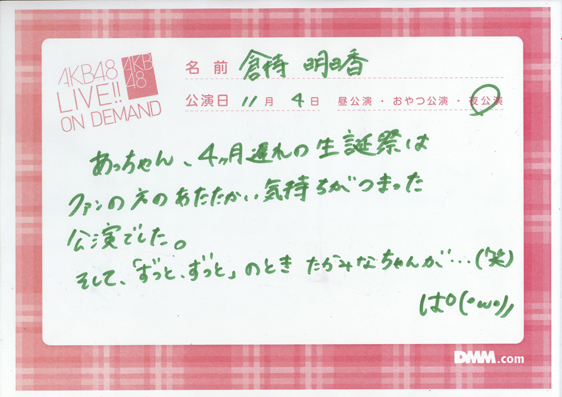 AKB48
LIVE!!
ON DEMAND
AKB
48
名前 倉持 明日香
公演日 11月 4日 昼公演・おやつ公演・夜公演
あっちゃん、4ヶ月遅れの生誕祭は
ファンの方のあたたかい気持ちがつまった
公演でした。
そして、「ずっと、ずっと」のとき たかみなちゃんが…(笑)
ぱ(・ω・)
DMM.com